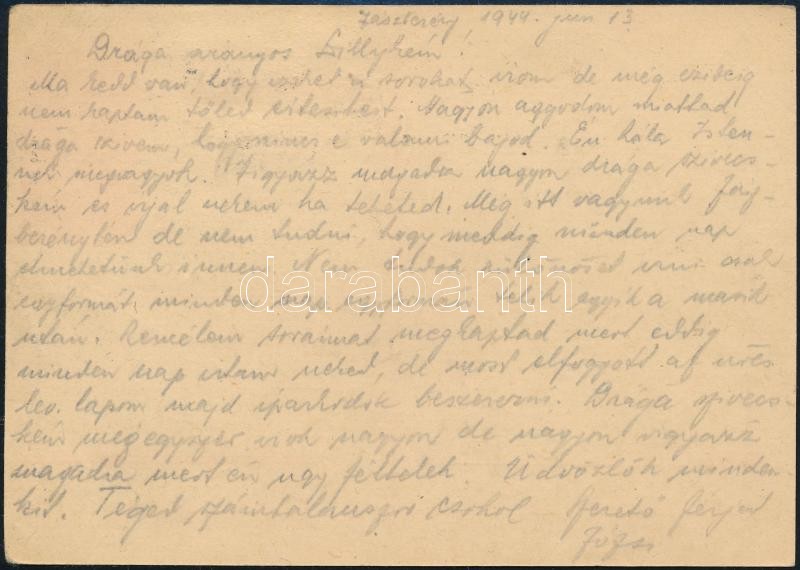 Jászberény, 1944. jun 13
Drága aranyos Lillykém!
Ma kedd van, hogy ezeket a sorokat irom de még ezideig
nem kaptam tőled értesitést. Nagyon aggodom miattad
drága szivem, hogy nincs e valami bajod. Én hála Isten-
nek megvagyok. Vigyázz magadra nagyon drága szivecs-
kém és irjál nekem ha teheted. Még itt vagyunk Jász-
berényben de nem tudni, hogy meddig minden nap
elmehetünk innen. Nem tudok irni csak
egyformát, minden nap egyformán telik egyik a másik
után. Remélem soraimat megkaptad mert eddig
minden nap irtam neked, de most elfogyott az
lev. lapom majd iparkodok beszerezni. Drága szivecs-
kém mégegyszer irok nagyon de nagyon vigyázz
magadra mert én ugy féltelek. Üdvözlök minden-
kit. Téged számtalanszor csókol szerető férjed
Józsi
darabanth